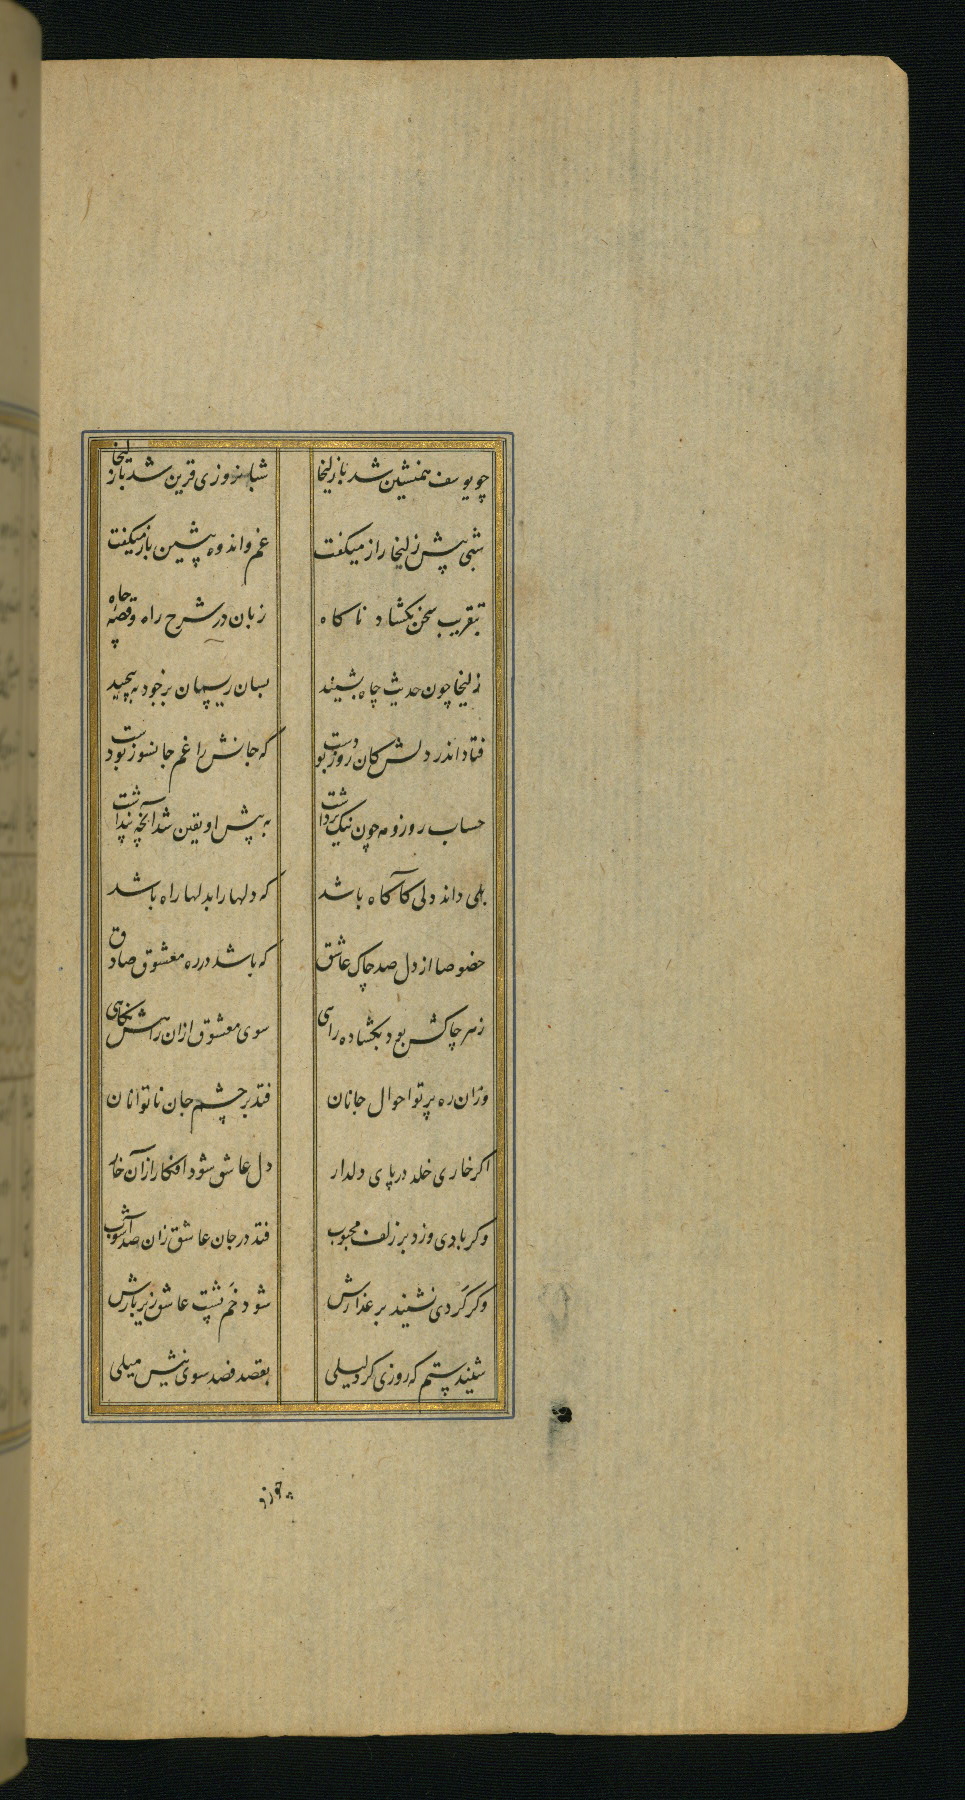 چو یوسف همنشین شد با زلیخا شبا نروزی قرین شد با زلیخا
شبی پیش زلیخا راز میکفت غم و اندوه پیشین باز میکفت
تبقریب سخن بکشاد ناکاه زبان در شرح راه و قصه چاه
زلیخا چون حدیث چاه بشنید بسان ریسمان بر خود به پیچید
فتاد اندر دلش کان روز بودست که جانش را غم جانسوز بودست
حساب روز و مه چون نیک برداشت به پیش او یقین شد آنچه پنداشت
بلی داند ولی کآکاه باشد که دلها را بدلها راه باشد
خصوصا از دل صد چاک عاشق که باشد در ره معشوق صادق
زهر چاکش بود بکشاده راهی سوی معشوق ازان راهش نکاهی
وزان ره پرتو احوال جانان فتد بر چشم جان ناتوانان
اکر خاری خلد در پای دلدار دل عاشق شود افکار ازان خار
وکر بادی وزد بر زلف محبوب فتد در جان عاشق زان صد آشوب
وکر کردی نشیند بر عذارش شود خم پشت عاشق زیر بارش
شنیدستم که روزی کرد لیلی بقصد فصد سوی نیش میلی